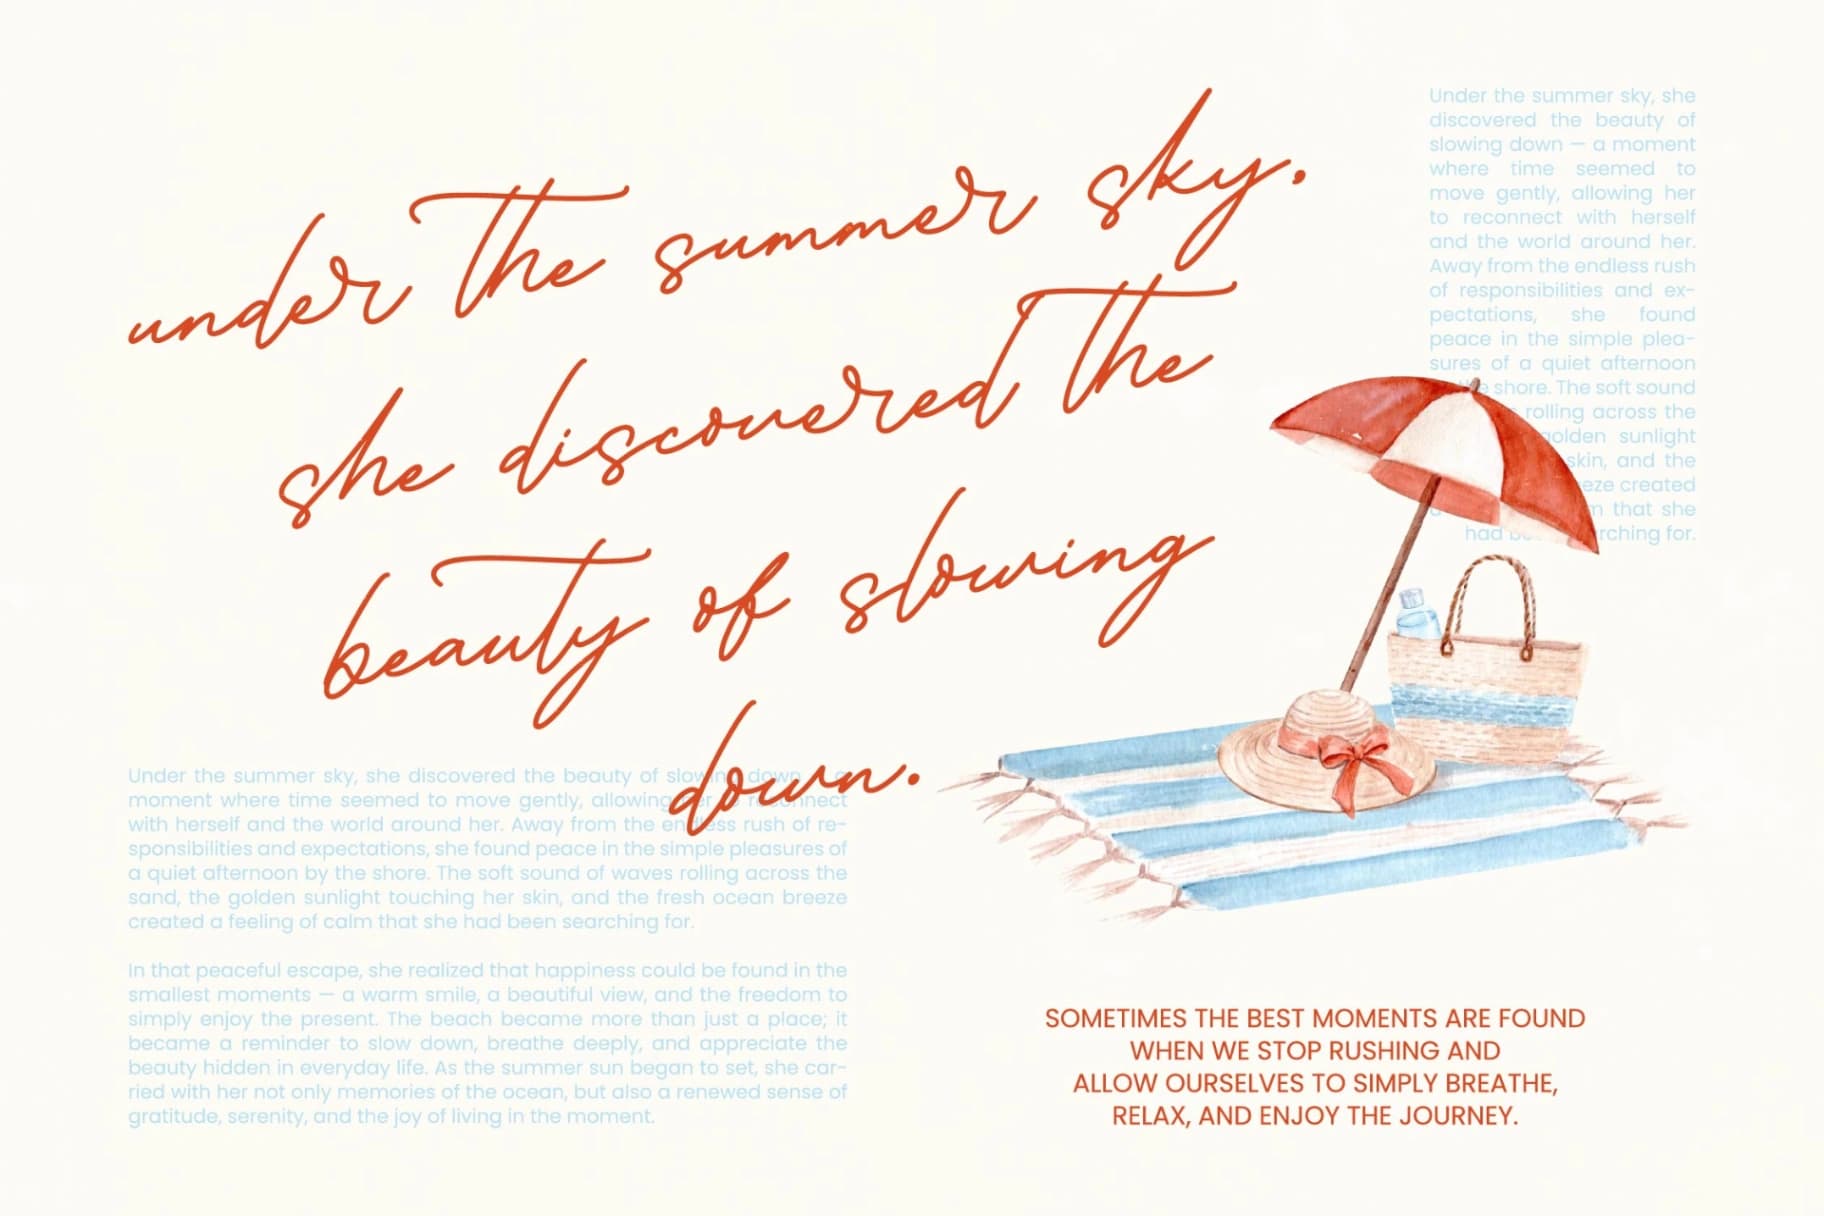 under the summer sky.
she discovered the
beauty of slowing
down.
Under the summer sky, she
discovered the beauty of
slowing down — a moment
where time seemed to
move gently, allowing her
to reconnect with herself
and the world around her.
Away from the endless rush
of responsibilities and ex-
pectations, she found
peace in the simple plea-
sures of a quiet afternoon
shore. The soft sound
rolling across the
golden sunlight
skin, and the
created
that she
had
for.
Under the summer sky, she discovered the beauty of slowing down
moment where time seemed to move gently, allowing reconnect
with herself and the world around her. Away from the endless rush of re-
sponsibilities and expectations, she found peace in the simple pleasures of
a quiet afternoon by the shore. The soft sound of waves rolling across the
sand, the golden sunlight touching her skin, and the fresh ocean breeze
created a feeling of calm that she had been searching for.
In that peaceful escape, she realized that happiness could be found in the
smallest moments — a warm smile, a beautiful view, and the freedom to
simply enjoy the present. The beach became more than just a place; it
became a reminder to slow down, breathe deeply, and appreciate the
beauty hidden in everyday life. As the summer sun began to set, she car-
ried with her not only memories of the ocean, but also a renewed sense of
gratitude, serenity, and the joy of living in the moment.
SOMETIMES THE BEST MOMENTS ARE FOUND
WHEN WE STOP RUSHING AND
ALLOW OURSELVES TO SIMPLY BREATHE,
RELAX, AND ENJOY THE JOURNEY.